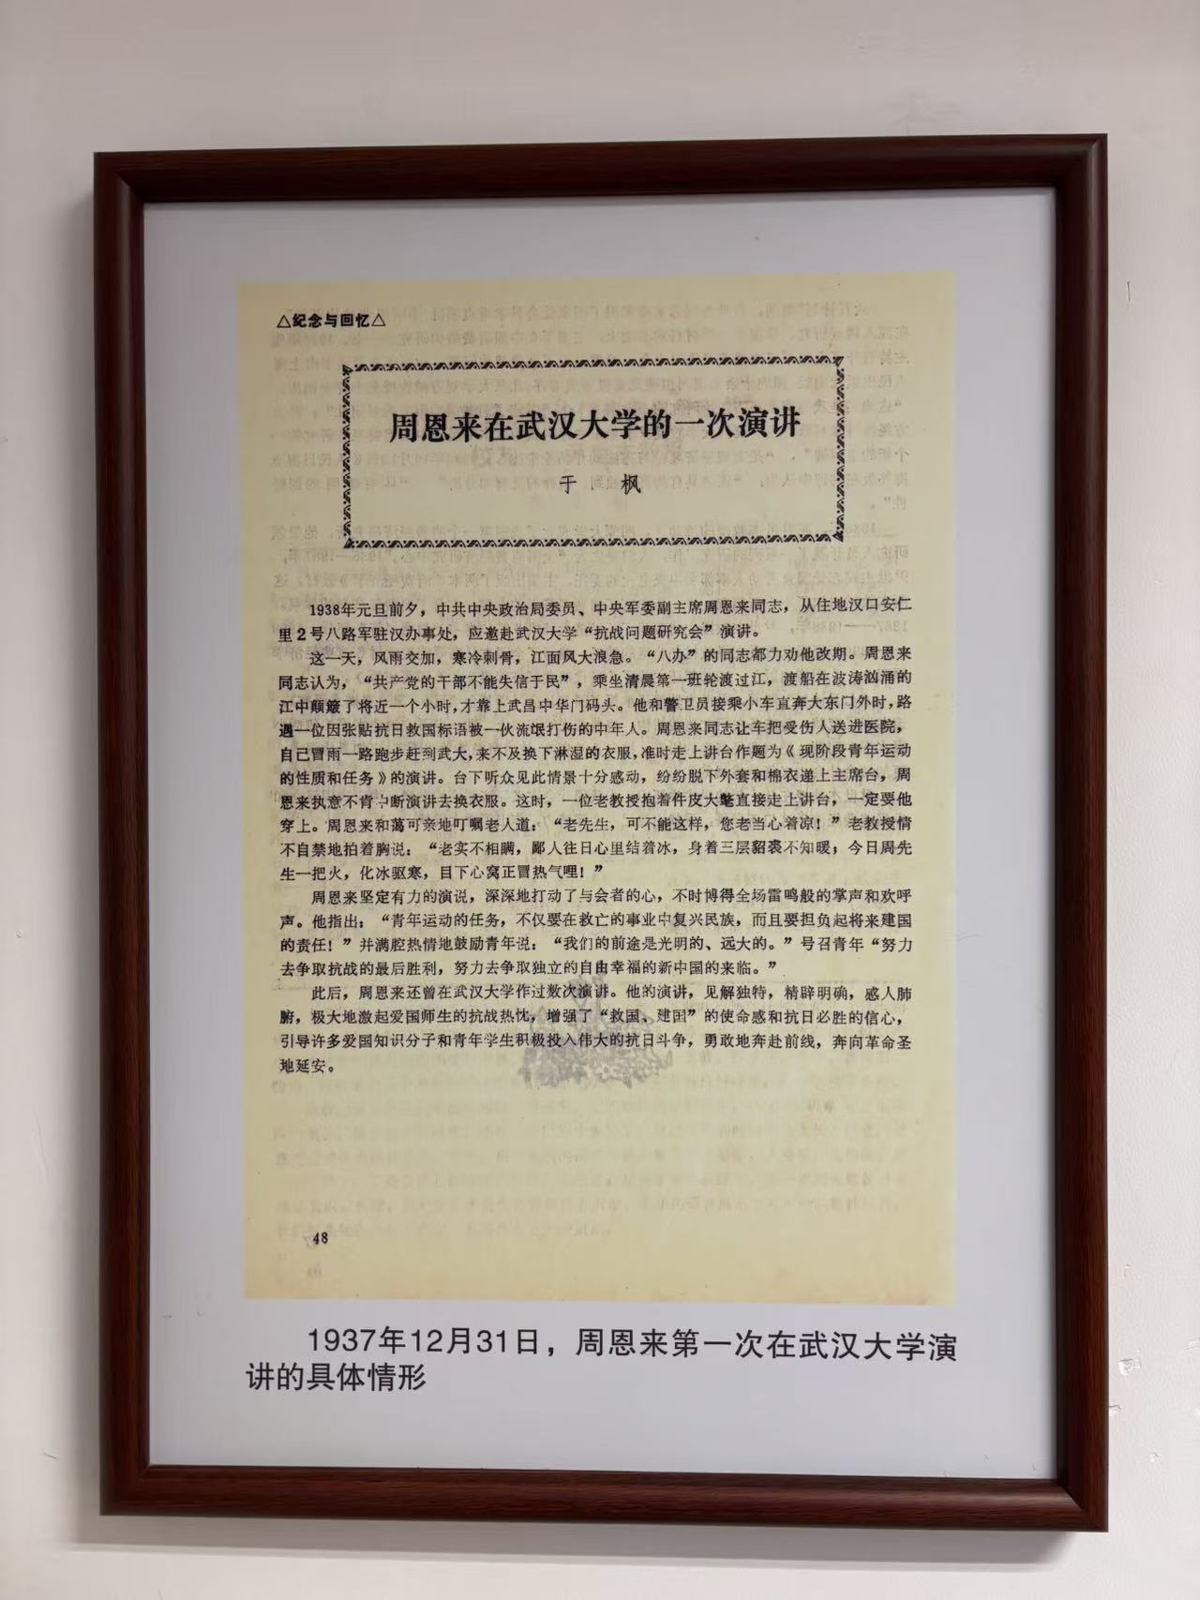 △纪念与回忆△
周恩来在武汉大学的一次演讲
于 枫
1938年元旦前夕，中共中央政治局委员、中央军委副主席周恩来同志，从住地汉口安仁
里2号八路军驻汉办事处，应邀赴武汉大学“抗战问题研究会”演讲。
这一天，风雨交加，寒冷刺骨，江面风大浪急。“八办”的同志都力劝他改期。周恩来
同志认为，“共产党的干部不能失信于民”，乘坐清晨第一班轮渡过江，渡船在波涛汹涌的
江中颠簸了将近一个小时，才靠上武昌中华门码头。他和警卫员接乘小车直奔大东门外时，路
遇一位因张贴抗日救国标语被一伙流氓打伤的中年人。周恩来同志让车把受伤人送进医院，
自己冒雨一路跑步赶到武大，来不及换下淋湿的衣服，准时走上讲台作题为《现阶段青年运动
的性质和任务》的演讲。台下听众见此情景十分感动，纷纷脱下外套和棉衣递上主席台，周
恩来执意不肯中断演讲去换衣服。这时，一位老教授抱着件皮大氅直接走上讲台，一定要他
穿上。周恩来和蔼可亲地叮嘱老人道：“老先生，可不能这样，您老当心着凉！”老教授情
不自禁地拍着胸说：“老实不相瞒，鄙人往日心里结着冰，身着三层貂裘不知暖；今日周先
生一把火，化冰驱寒，目下心窝正冒热气哩！”
周恩来坚定有力的演说，深深地打动了与会者的心，不时博得全场雷鸣般的掌声和欢呼
声。他指出：“青年运动的任务，不仅要在救亡的事业中复兴民族，而且要担负起将来建国
的责任！”并满腔热情地鼓励青年说：“我们的前途是光明的、远大的。”号召青年“努力
去争取抗战的最后胜利，努力去争取独立的自由幸福的新中国的来临。”
此后，周恩来还曾在武汉大学作过数次演讲。他的演讲，见解独特，精辟明确，感人肺
腑，极大地激起爱国师生的抗战热忱，增强了“救国、建国”的使命感和抗日必胜的信心，
引导许多爱国知识分子和青年学生积极投入伟大的抗日斗争，勇敢地奔赴前线，奔向革命圣
地延安。
48
1937年12月31日，周恩来第一次在武汉大学演
讲的具体情形